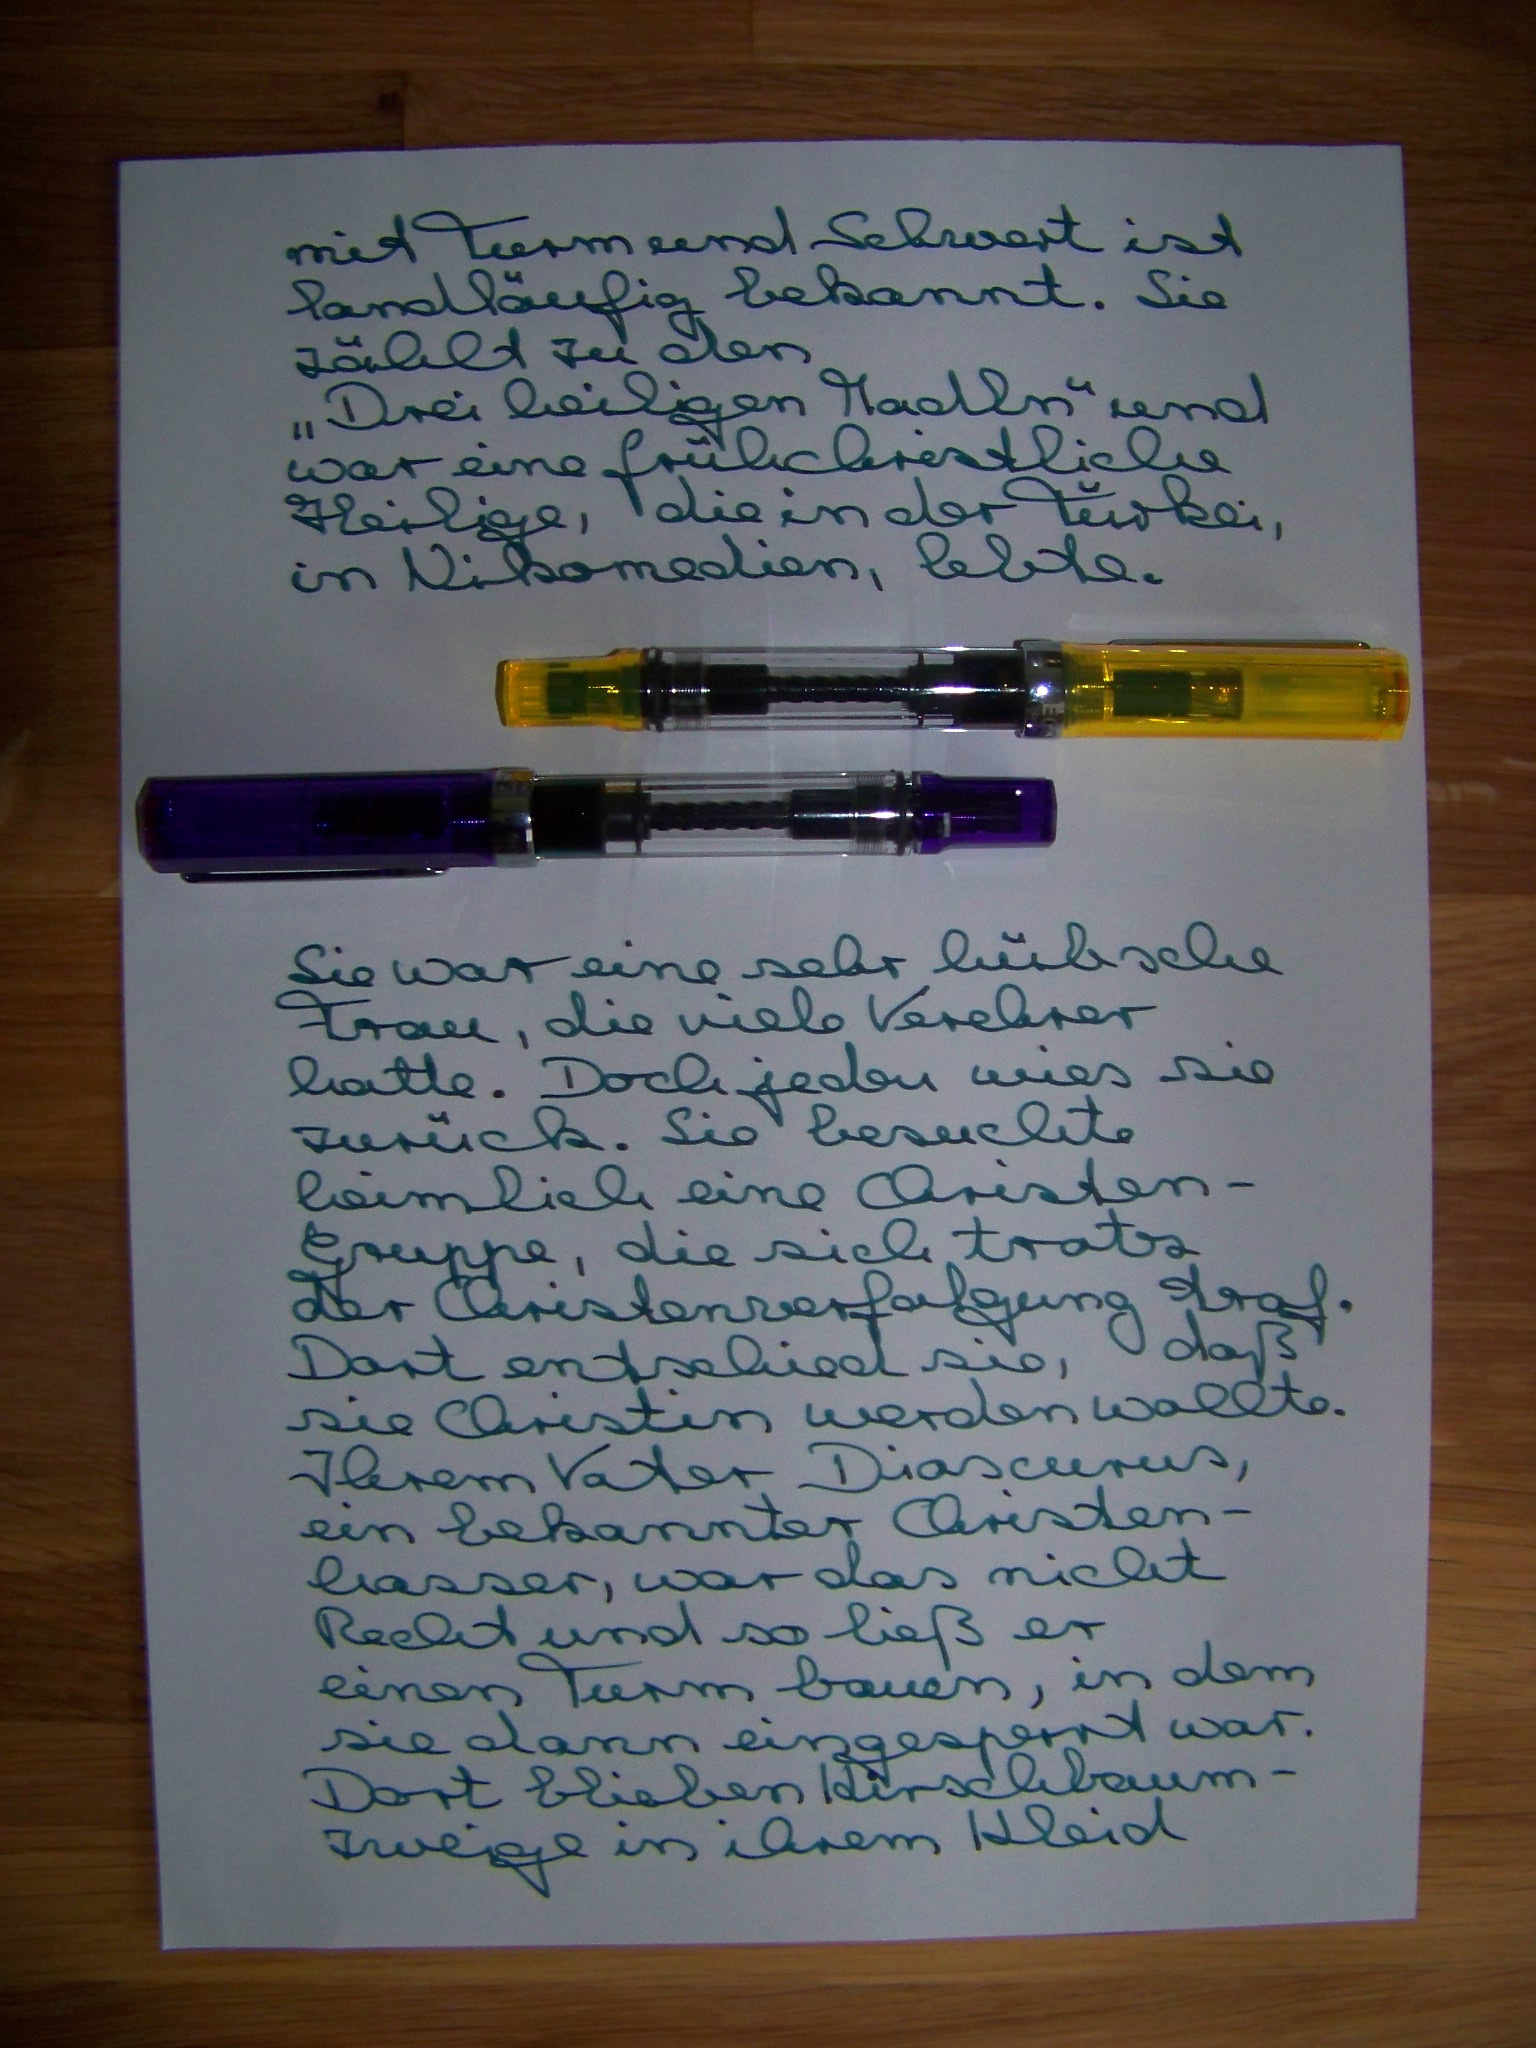 mit Turm und Schwert ist
landläufig bekannt. Sie
zählt zu den
„Drei heiligen Madln" und
war eine frühchristliche
Heilige, die in der Türkei,
in Nikomedien, lebte.
Sie war eine sehr hübsche
Frau, die viele Verehrer
hatte. Doch jeden wies sie
zurück. Sie besuchte
heimlich eine Christen-
gruppe, die sich trotz
der Christenverfolgung traf.
Dort entschied sie, daß
sie Christin werden wollte.
Ihrem Vater Dioscurus,
ein bekannter Christen-
hasser, war das nicht
Recht und so ließ er
einen Turm bauen, in dem
sie dann eingesperrt war.
Dort blieben Kirschbaum-
zweige in ihrem Kleid